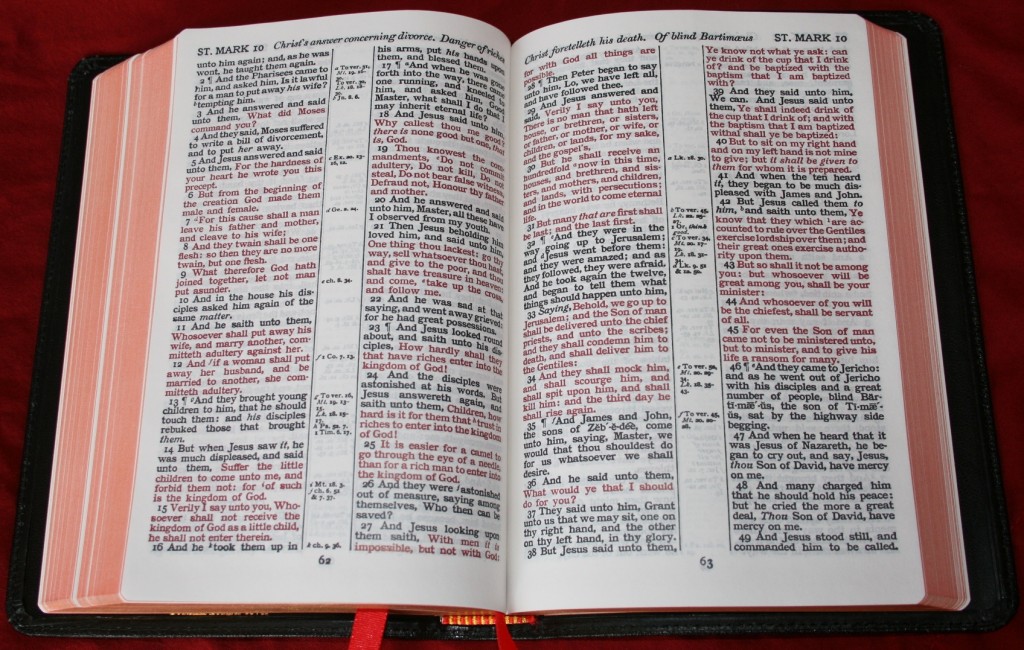 ST. MARK 10 Christ's answer concerning divorce. Danger of riches
unto him again; and, as he was
wont, he taught them again.
2 ¶ And the Pharisees came to
him, and asked him, Is it lawful
for a man to put away his wife?
tempting him.
3 And he answered and said
unto them, What did Moses
command you?
4 And they said, Moses suffered
to write a bill of divorcement,
and to put her away.
5 And Jesus answered and said
unto them, For the hardness of
your heart he wrote you this
precept.
6 But from the beginning of
the creation God made them
male and female.
7 For this cause shall a man
leave his father and mother,
and cleave to his wife;
8 And they twain shall be one
flesh: so then they are no more
twain, but one flesh.
9 What therefore God hath
joined together, let not man
put asunder.
10 And in the house his dis-
ciples asked him again of the
same matter.
11 And he saith unto them,
Whosoever shall put away his
wife, and marry another, com-
mitteth adultery against her.
12 And if a woman shall put
away her husband, and be
married to another, she com-
mitteth adultery.
13 ¶ And they brought young
children to him, that he should
touch them: and his disciples
rebuked those that brought
them.
14 But when Jesus saw it, he
was much displeased, and said
unto them, Suffer the little
children to come unto me, and
forbid them not: for of such
is the kingdom of God.
15 Verily I say unto you, Who-
soever shall not receive the
kingdom of God as a little child,
he shall not enter therein.
16 And he took them up in
his arms, put his hands upon
them, and blessed them.
17 ¶ And when he was gone
forth into the way, there came
one running, and kneeled to
him, and asked him, Good
Master, what shall I do that I
may inherit eternal life?
18 And Jesus said unto him,
Why callest thou me good?
there is none good but one, that
is, God.
19 Thou knowest the com-
mandments, Do not commit
adultery, Do not kill, Do not
steal, Do not bear false witness,
Defraud not, Honour thy father
and mother.
20 And he answered and said
unto him, Master, all these have
I observed from my youth.
21 Then Jesus beholding him
loved him, and said unto him,
One thing thou lackest: go thy
way, sell whatsoever thou hast,
and give to the poor, and thou
shalt have treasure in heaven:
and come, take up the cross,
and follow me.
22 And he was sad at that
saying, and went away grieved:
for he had great possessions.
23 ¶ And Jesus looked round
about, and saith unto his dis-
ciples, How hardly shall they
that have riches enter into the
kingdom of God!
24 And the disciples were
astonished at his words. But
Jesus answereth again, and
saith unto them, Children, how
hard is it for them that trust in
riches to enter into the kingdom
of God!
25 It is easier for a camel to
go through the eye of a needle,
than for a rich man to enter into
the kingdom of God.
26 And they were astonished
out of measure, saying among
themselves, Who then can be
saved?
27 And Jesus looking upon
them saith, With men it is
impossible, but not with God:
62
Christ foretelleth his death. Of blind Bartimæus ST. MARK 10
for with God all things are
possible.
28 ¶ Then Peter began to say
unto him, Lo, we have left all,
and have followed thee.
29 And Jesus answered and
said, Verily I say unto you,
There is no man that hath left
house, or brethren, or sisters,
or father, or mother, or wife, or
children, or lands, for my sake,
and the gospel's,
30 But he shall receive an
hundredfold now in this time,
houses, and brethren, and sis-
ters, and mothers, and children,
and lands, with persecutions;
and in the world to come eternal
life.
31 But many that are first shall
be last; and the last first.
32 ¶ And they were in the
way going up to Jerusalem;
and Jesus went before them:
and they were amazed; and as
they followed, they were afraid.
And he took again the twelve,
and began to tell them what
things should happen unto him,
33 Saying, Behold, we go up to
Jerusalem; and the Son of man
shall be delivered unto the chief
priests, and unto the scribes;
and they shall condemn him to
death, and shall deliver him to
the Gentiles:
34 And they shall mock him,
and shall scourge him, and
shall spit upon him, and shall
kill him: and the third day he
shall rise again.
35 ¶ And James and John,
the sons of Zĕb´-ĕ-dēe, come
unto him, saying, Master, we
would that thou shouldest do
for us whatsoever we shall
desire.
36 And he said unto them,
What would ye that I should
do for you?
37 They said unto him, Grant
unto us that we may sit, one on
thy right hand, and the other
on thy left hand, in thy glory.
38 But Jesus said unto them,
Ye know not what ye ask: can
ye drink of the cup that I drink
of? and be baptized with the
baptism that I am baptized
with?
39 And they said unto him,
We can. And Jesus said unto
them, Ye shall indeed drink of
the cup that I drink of; and with
the baptism that I am baptized
withal shall ye be baptized:
40 But to sit on my right hand
and on my left hand is not mine
to give; but it shall be given to
them for whom it is prepared.
41 And when the ten heard
it, they began to be much dis-
pleased with James and John.
42 But Jesus called them to
him, and saith unto them, Ye
know that they which are ac-
counted to rule over the Gentiles
exercise lordship over them; and
their great ones exercise autho-
rity upon them.
43 But so shall it not be among
you: but whosoever will be
great among you, shall be your
minister:
44 And whosoever of you will
be the chiefest, shall be servant
of all.
45 For even the Son of man
came not to be ministered unto,
but to minister, and to give his
life a ransom for many.
46 ¶ And they came to Jericho:
and as he went out of Jericho
with his disciples and a great
number of people, blind Bär-
tĭ-mæ´-ŭs, the son of Tī-mæ´-
ŭs, sat by the highway side
begging.
47 And when he heard that it
was Jesus of Nazareth, he be-
gan to cry out, and say, Jesus,
thou Son of David, have mercy
on me.
48 And many charged him
that he should hold his peace:
but he cried the more a great
deal, Thou Son of David, have
mercy on me.
49 And Jesus stood still, and
commanded him to be called.
63